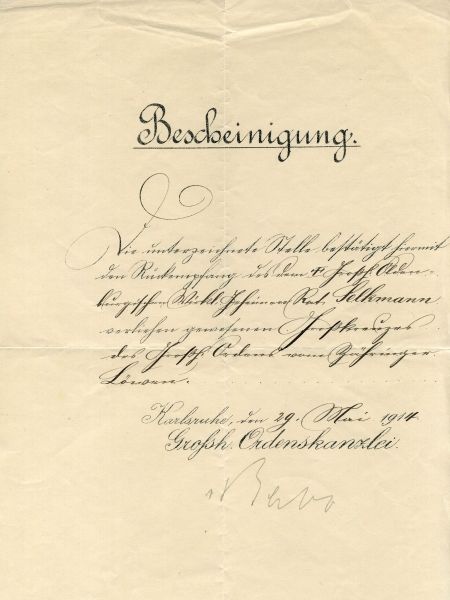 Bescheinigung.
Die unterzeichnete Stelle bestätigt hiermit
den Rückempfang des dem † Großh. Olden-
burgischen Wirkl. Geheimen Rat, Selkmann
verliehen gewesenen Großkreuzes
des Großh. Ordens vom Zähringer
Löwen.
Karlsruhe, den 29. Mai 1914
Großh. Ordenskanzlei.